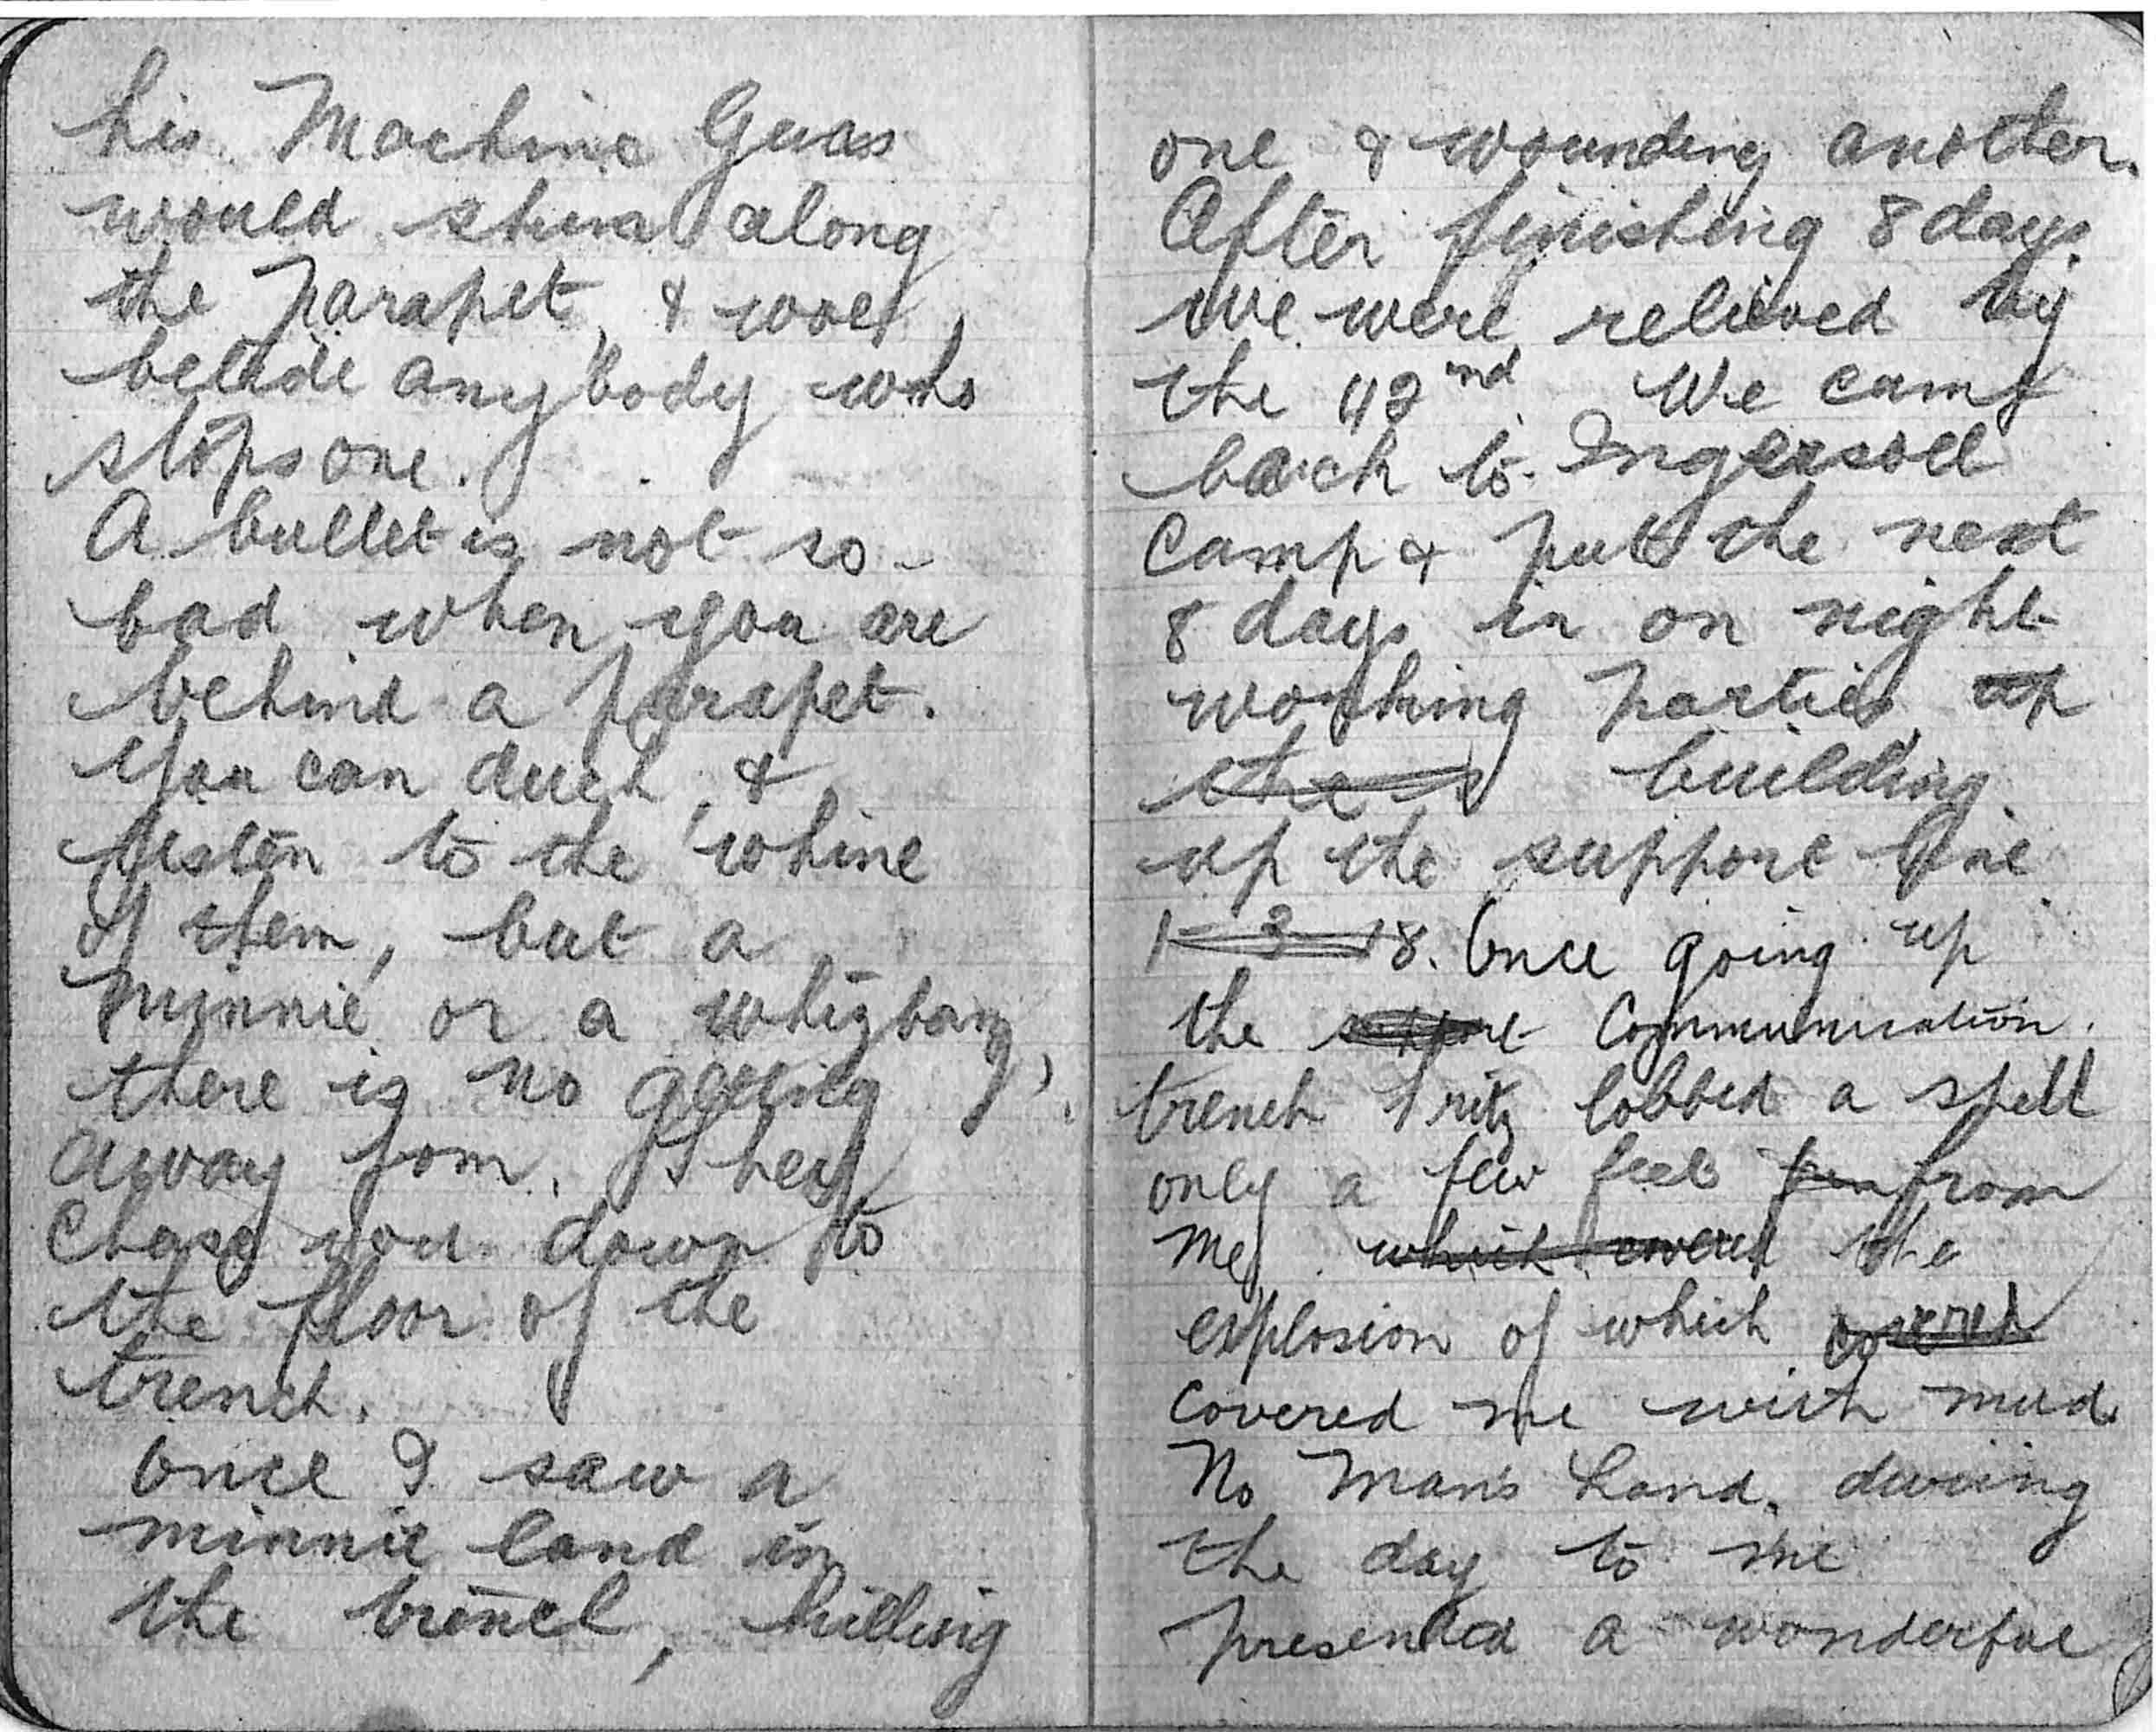 his Machine Guns
would skim along
the parapet, & woe
betide anybody who
stops one.
A bullet is not so
bad when you are
behind a parapet.
You can duck, &
listen to the whine
of them, but a
minnie or a whizbang,
there is no getting
away fom. They
chase you down to
the floor of the
trench.
Once I saw a
minnie land in
the trench, killing
one & wounding another.
After finishing 8 days
we were relieved by
the 42nd. We came
back to Ingersoll
Camp & put the next
8 days in on night
working parties up
the building
up the support line
1-3-18. Once going up
the support Communication
trench Fritz lobbed a shell
only a few feet from
me which covered the
explosion of which covered
covered me with mud.
No Mans Land, during
the day to me
presented a wonderful